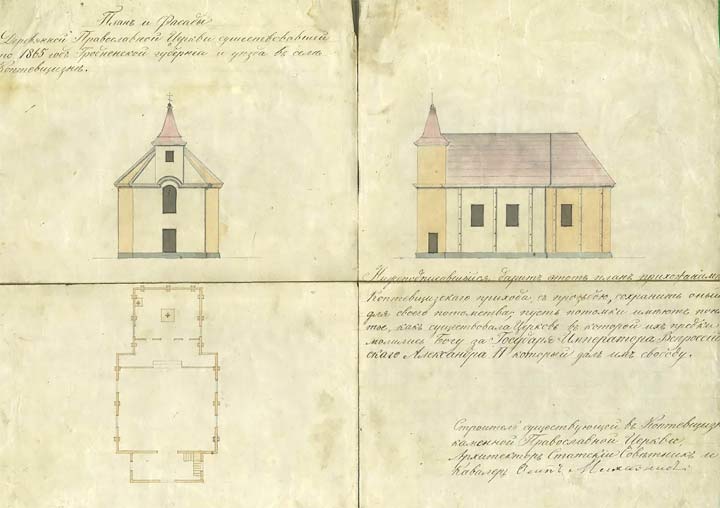 Планъ и Фасады
Деревянной Православной Церкви существовавшей
по 1865 годъ Гродненской губерніи и уѣзда въ селѣ
Коптевщизнѣ.
Нижеподписавшійся даритъ этотъ планъ прихожанамъ
Коптевщизскаго прихода, съ просьбою, сохранить оный
для своего потомства; пусть потомки имѣютъ поня-
тіе, какъ существовала Церковь въ которой ихъ предки
молились Богу за Государя Императора Всероссій-
скаго Александра II который далъ имъ свободу.
Строитель существующей въ Коптевщизнѣ
каменной Православной Церкви,
Архитекторъ Статскій Совѣтникъ и
Кавалеръ